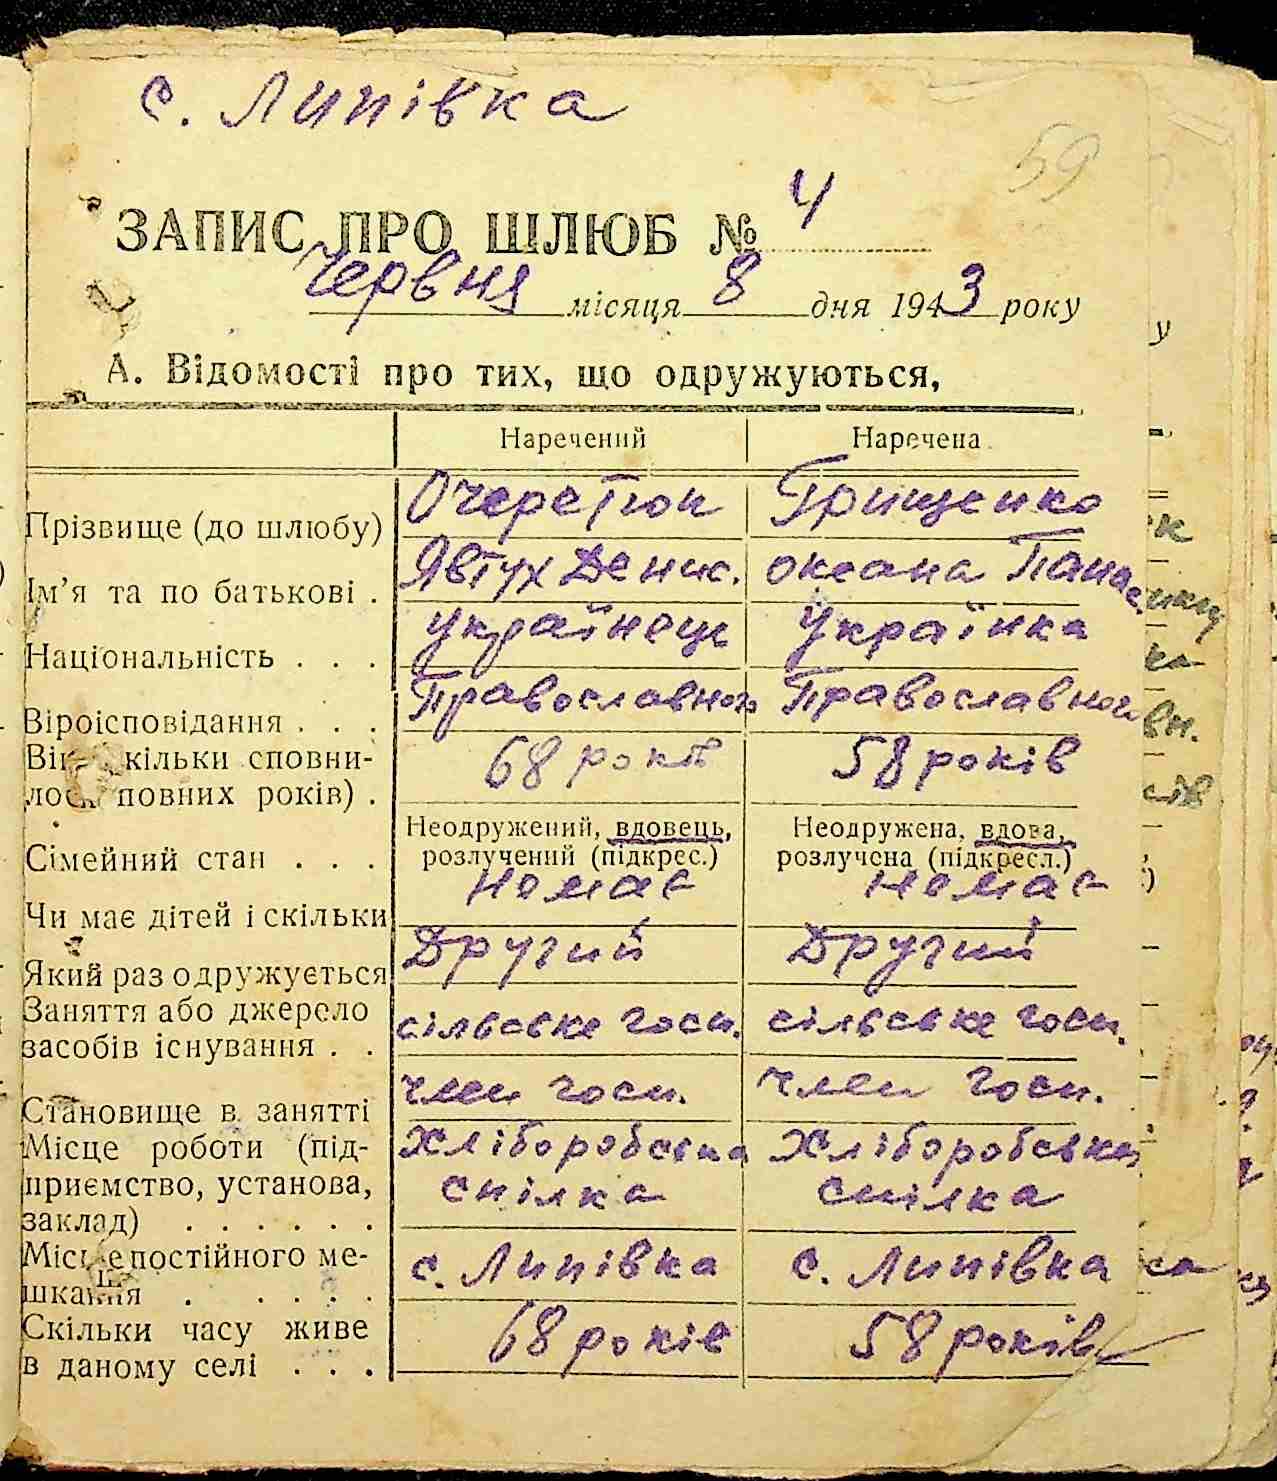 с. Липівка
59
ЗАПИС ПРО ШЛЮБ № 4
Червня місяця 8 дня 1943 року
А. Відомості про тих, що одружуються,
Наречений Наречена
Прізвище (до шлюбу) Очеретюк Грищенко
Ім’я та по батькові . Явтух Денис. оксана Панас.
Національність . . . українець Українка
Віроісповідання . . . Православного Православного
Вік кільки сповни-
лось повних років) . 68 років 58 років
Неодружений, вдовець, Неодружена, вдова,
Сімейний стан . . . розлучений (підкрес.) розлучена (підкресл.)
Чи має дітей і скільки немає немає
Який раз одружується Другий Другий
Заняття або джерело
засобів існування . . сільське госп. сільське госп.
Становище в занятті член госп. член госп.
Місце роботи (під- Хліборобська Хліборобська
приємство, установа, спілка спілка
заклад) . . . . . .
Місце постійного ме- с. Липівка с. Липівка
шкання . . . . .
Скільки часу живе 68 років 58 років
в даному селі . . .